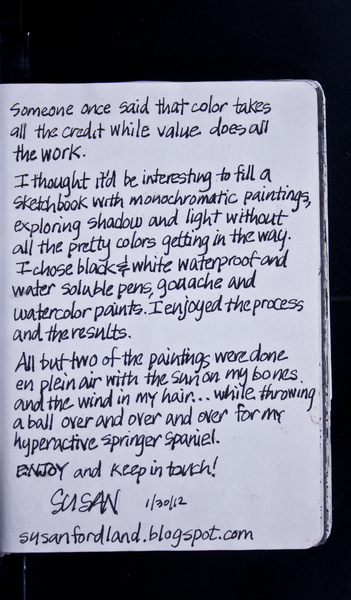 Someone once said that color takes
all the credit while value does all
the work.
I thought it'd be interesting to fill a
sketchbook with monochromatic paintings,
exploring shadow and light without
all the pretty colors getting in the way.
I chose black & white waterproof and
water soluble pens, gouache and
watercolor paints. I enjoyed the process
and the results.
All but two of the paintings were done
en plein air with the sun on my bones
and the wind in my hair... while throwing
a ball over and over and over for my
hyperactive springer spaniel.
ENJOY and keep in touch!
SUSAN 1/30/12
susanfordland.blogspot.com